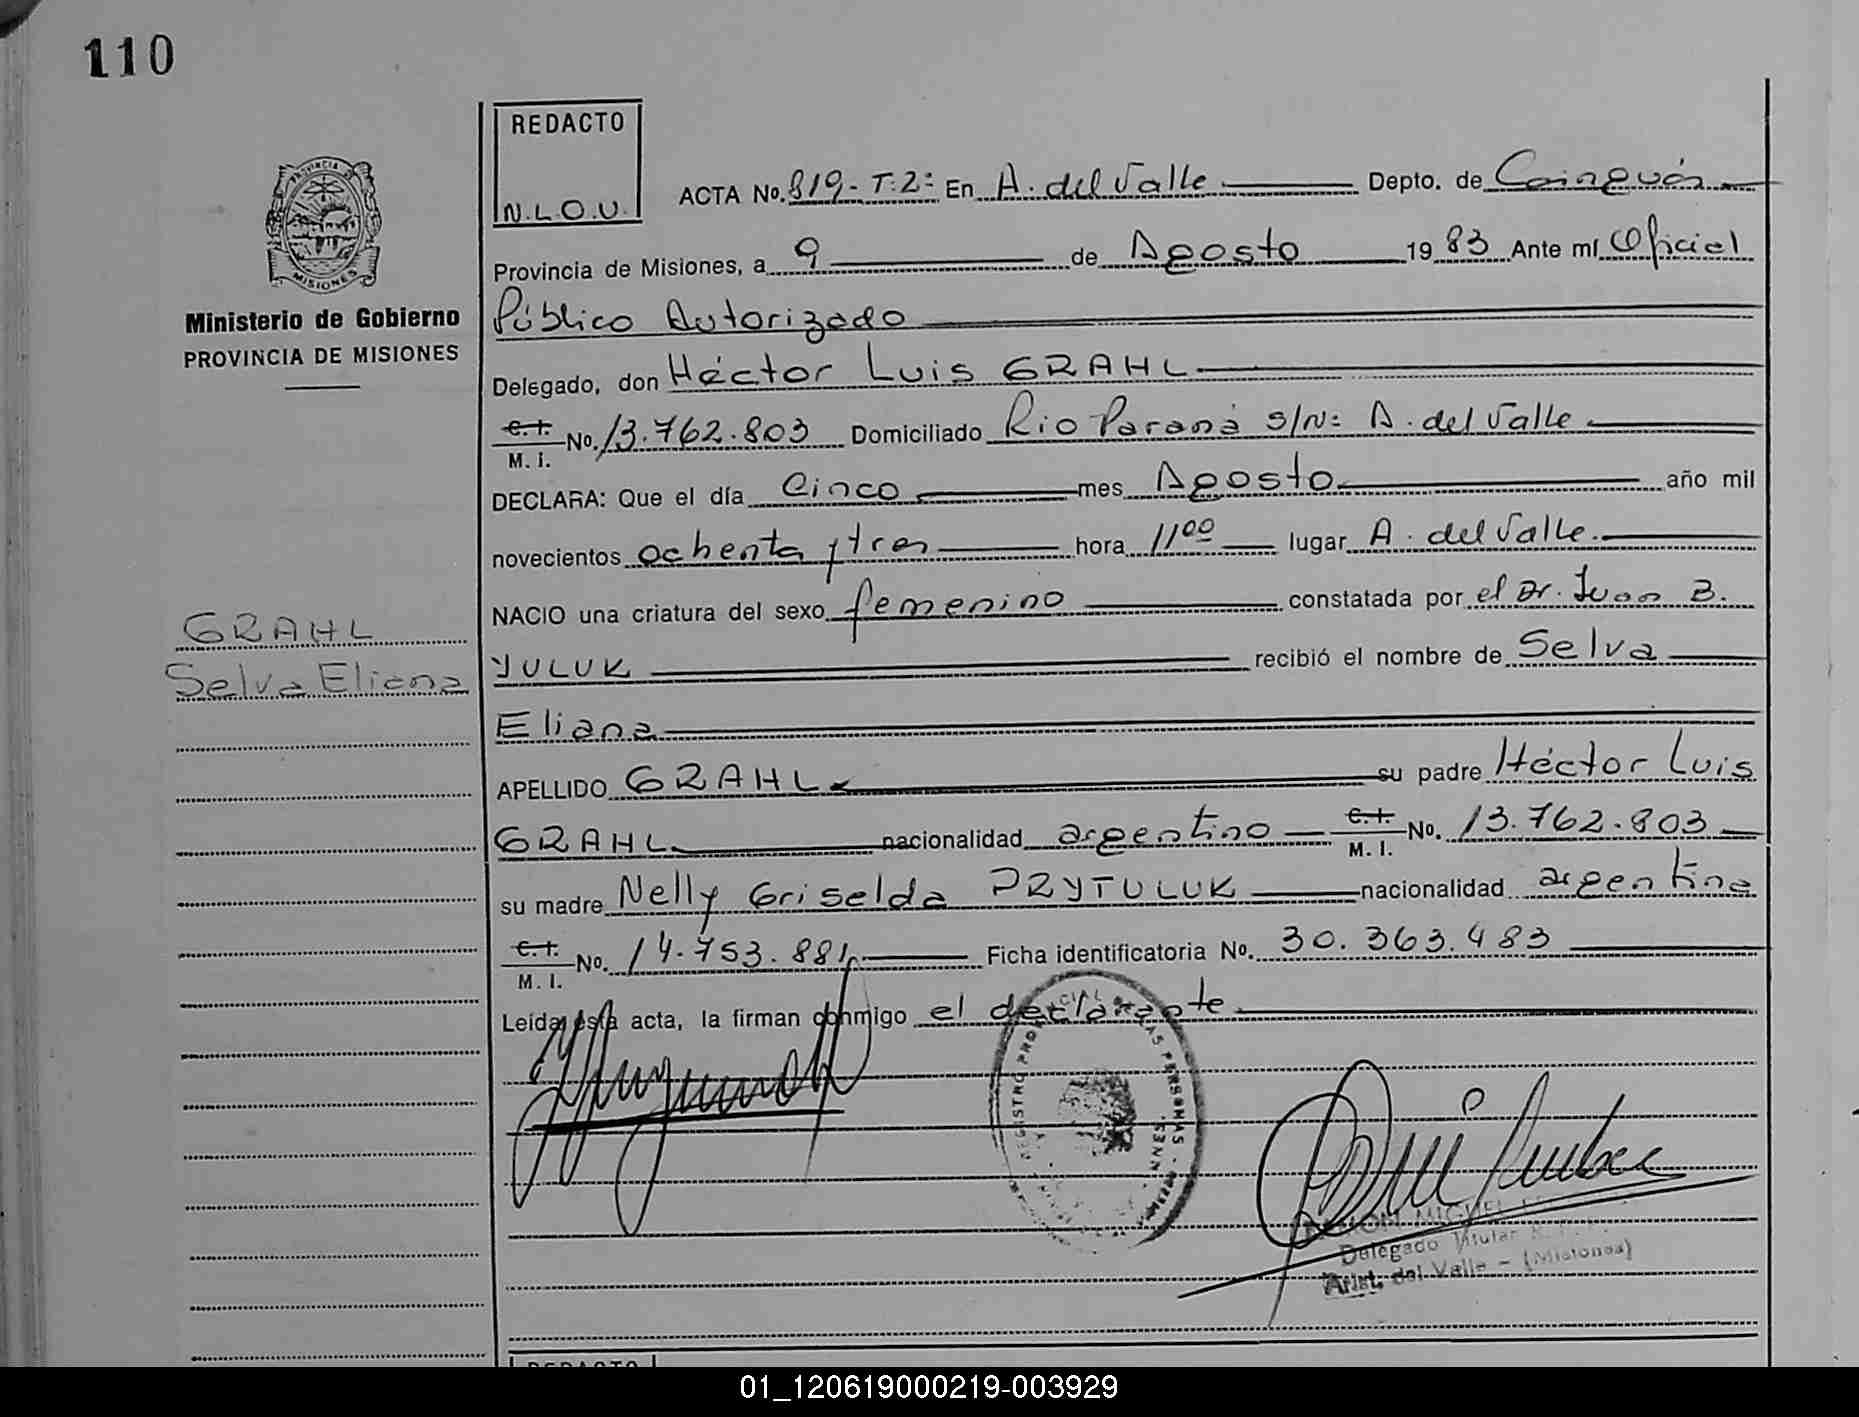 110
REDACTO
N.L.O.U.
ACTA No. 819- T:2º En A. del Valle Depto. de Cainguás
Provincia de Misiones, a 9 de Agosto 1983 Ante mí Oficial
Público Autorizado
Delegado, don Héctor Luis GRAHL
C.I. M.I. No. 13.762.803 Domiciliado Río Paraná s/Nº A. del Valle
DECLARA: Que el día Cinco mes Agosto año mil
novecientos ochenta y tres hora 11 00 lugar A. del Valle.
NACIO una criatura del sexo femenino constatada por el Dr. Juan B.
YULUK recibió el nombre de Selva
Eliana
APELLIDO GRAHL su padre Héctor Luis
GRAHL nacionalidad argentino C.I. M.I. No. 13.762.803
su madre Nelly Griselda PRYTULUK nacionalidad argentina
C.I. M.I. No. 14.753.881 Ficha identificatoria No. 30.363.483
Leída esta acta, la firman conmigo el declarante
PROVINCIA DE
MISIONES
Ministerio de Gobierno
PROVINCIA DE MISIONES
GRAHL
Selva Eliana
REGISTRO PROVINCIAL DE LAS PERSONAS
MIGUEL
Delegado Titular
Arist. del Valle - (Misiones)
REDACTO
01_120619000219-003929